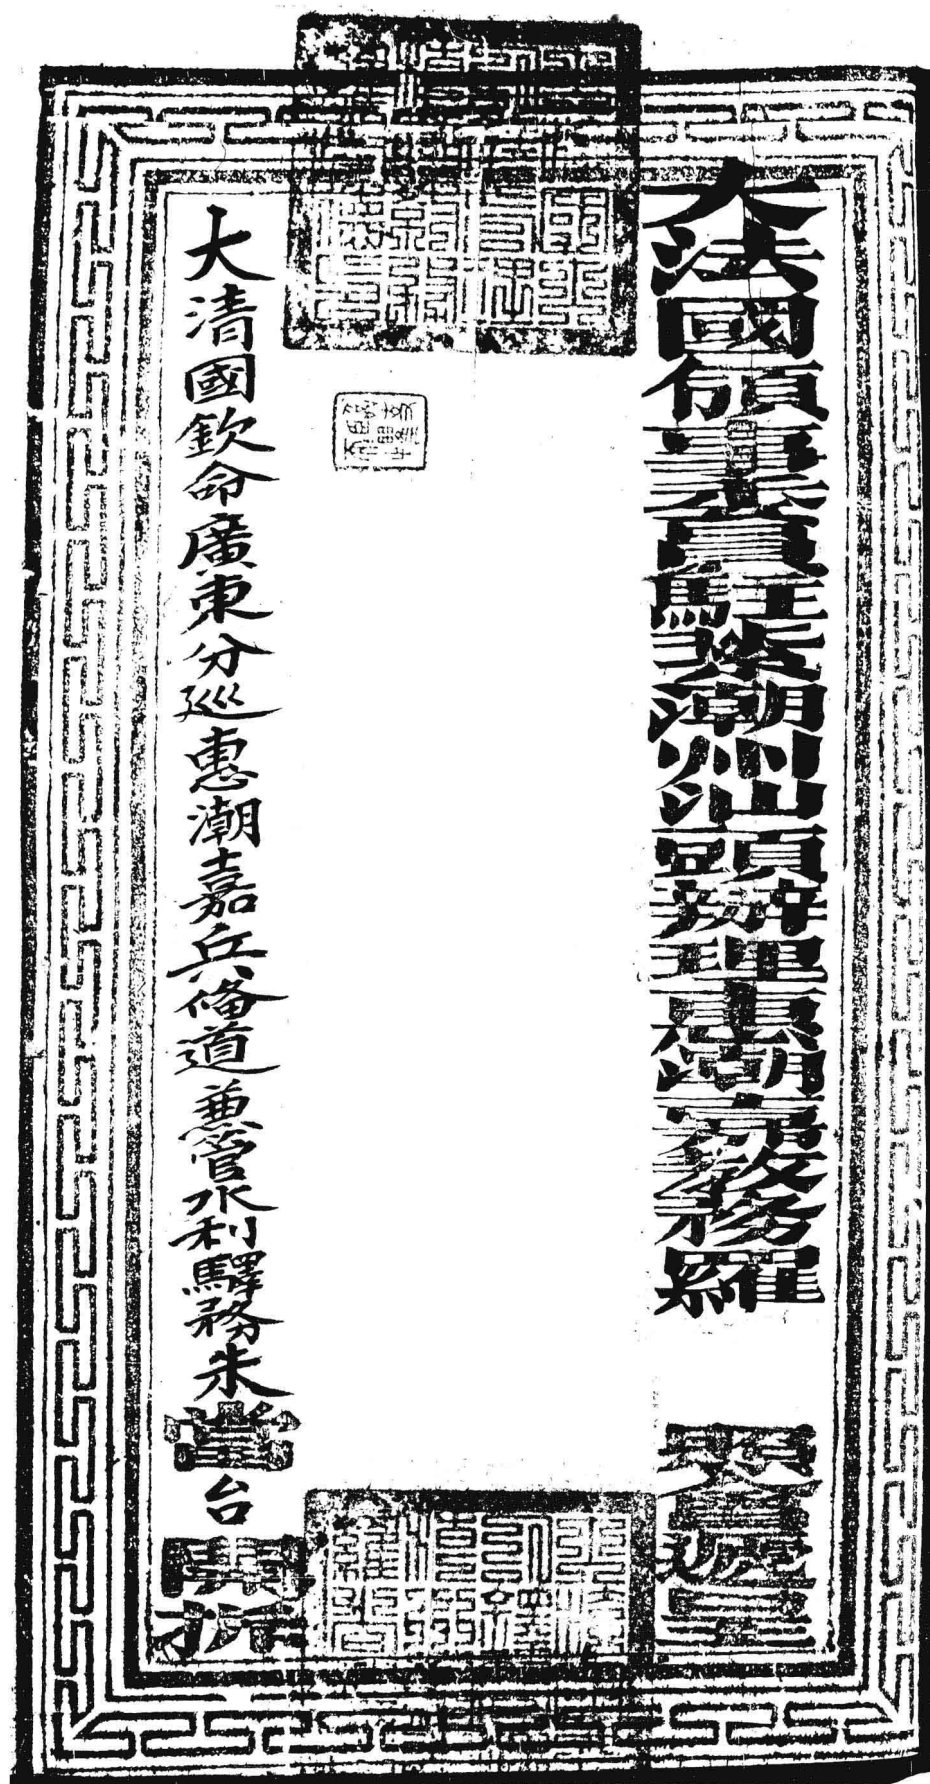 大法國領事委員駐紥潮州汕頭辦理惠潮嘉教務羅 照會遞呈
大清國欽命廣東分巡惠潮嘉兵備道兼管水利驛務朱堂台開拆